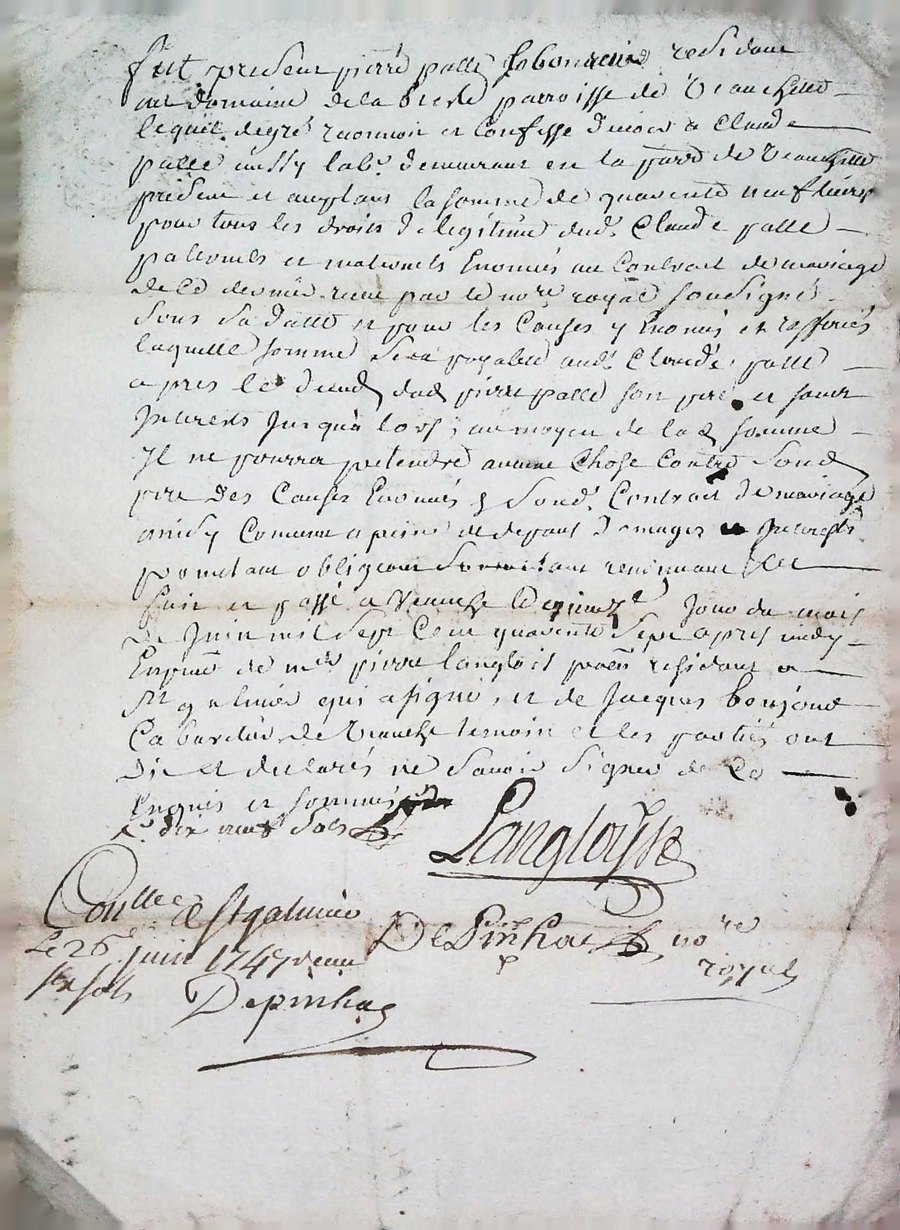 fut present pierre palle laboureur residant
au domaine de la parroisse de Veauche
lequel de gré reconnoit et confesse devoir a Claude
palle aussy labr. demeurant en la parr de Veauche
present et acceptant la somme de quarente neuf livres
pour tous les droits de legitime dud. Claude palle
paternels et maternels Enoncés au Contrait de mariage
de Ce dernier receu par le nore royal soussigné
sous sa datte et pour les Causes y Enoncés et
laquelle somme sera payable aud. Claude palle
apres le deced dud pierre palle son pere et sans
Interests Jusqu'a lors; au moyen de lad somme
Il ne pourra pretendre aucune Chose Contre Sond
pere des Causes Enoncés & Sond. Contrait de mariage
Comme a peine de depans domages Interests
promettant obligeant renoncant &c
fait et passé a Veauche le Jour du mois
de Juin mil Sept Cent quarente Sept apres midy
En pnce de mre pierre langlois residant a
St galmier qui a signé, et de Jacques bonjour
Cabaretier de Veauche temoin et les parties ont
dit et declarés ne Savoir Signer de Ce
Enquis et sommés
dix neuf Sols
Langloys
Conllee a St galmier
Le 26e juin 1747 receu
six sols
DePinhac nore
royal
Depinhac